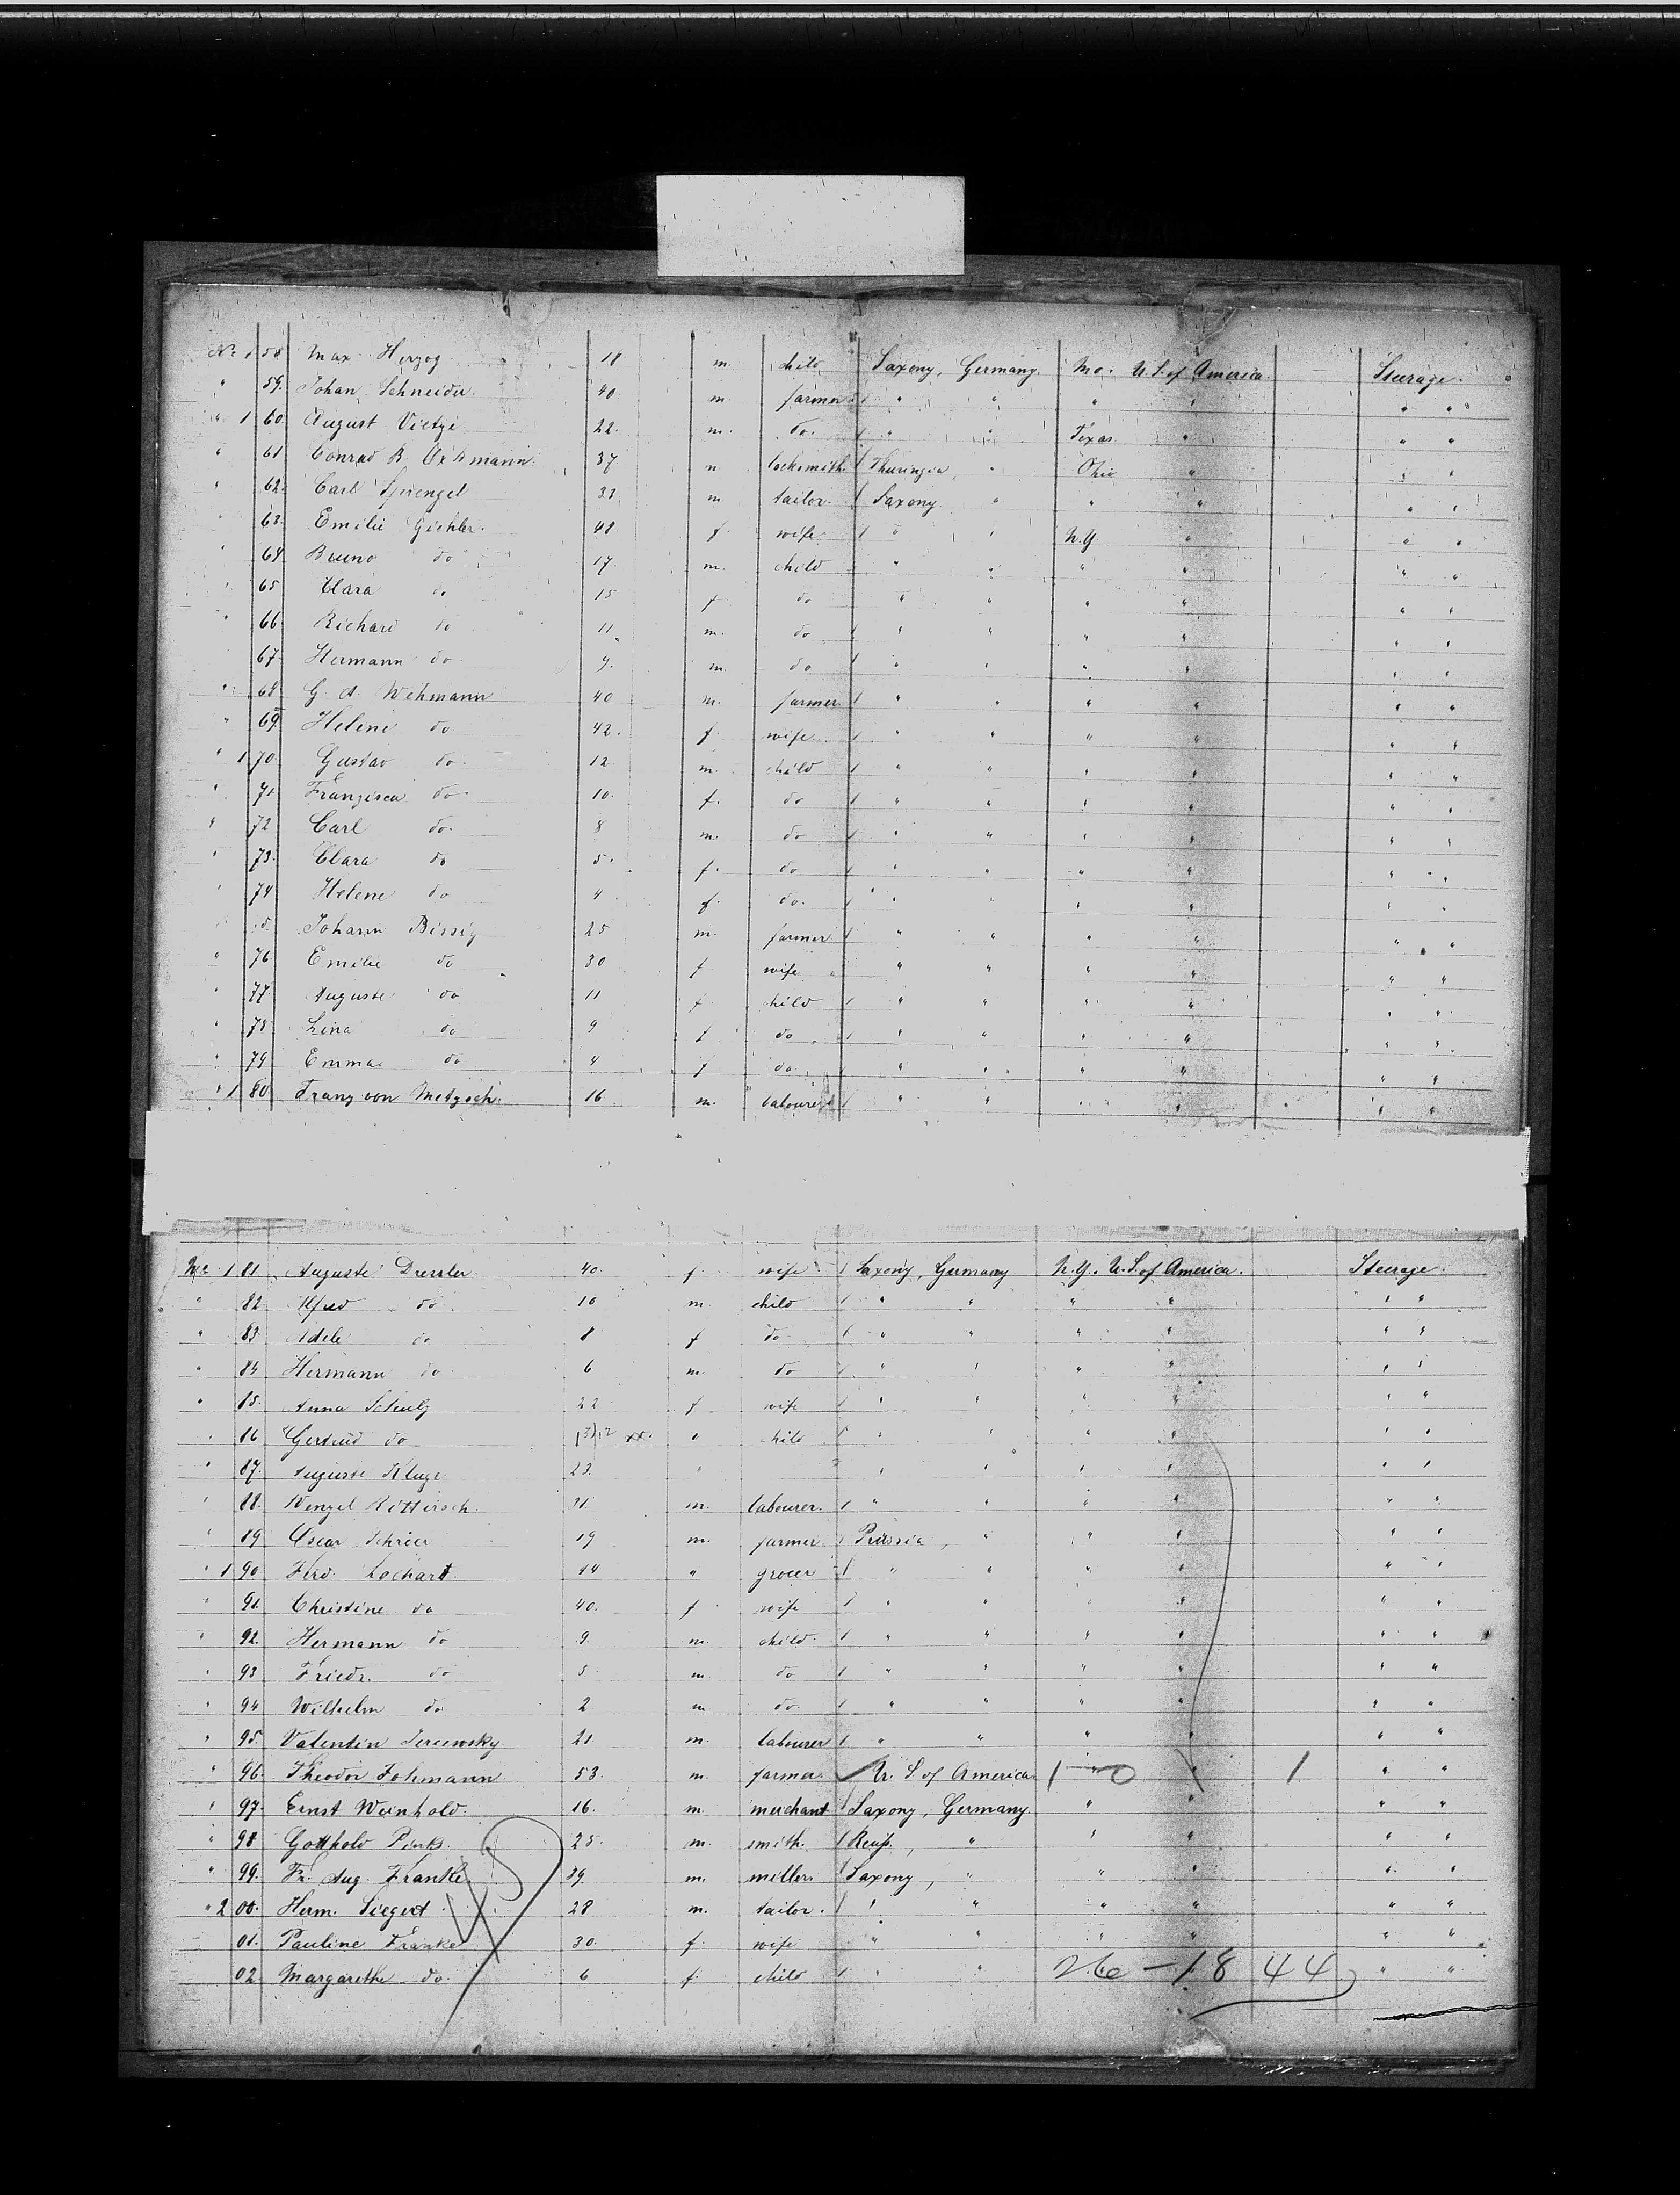 No 1 58 Max Herzog 18 m. child Saxony, Germany. Mo: U.S. of America. Steerage. "
" 59. Johan Schneider. 40 m farmer " " " " " "
" 1 60. August Vietze 22. m. do. " " Texas. " " "
" 61 Conrad B. 37. locksmith Thuringia, " Ohio " " "
" 62. Carl Sprengel 33 m tailor. Saxony " " " " "
63. Emilie Gichler. 48 f. wife. " " N.Y. " " "
" 64 Bruno do 17. m. child " " " " " "
" 65 Clara do 15 f do " " " " " "
" 66. Richard do 11 m. do " " " " " "
67. Hermann do 9. m. do " " " " " "
" 68. G. A. Wehmann 40 m. farmer. " " " " " "
" 69. Helene do 42. f. wife. " " " " " "
" 1 70. Gustav do. 12 m. child " " " " " "
" 71. Franzisca do. 10. f. do " " " " " "
" 72 Carl do. 8 m. do " " " " " "
" 73. Clara do 5. f. do " " " " " "
" 74 Helene do 4 f. do. " " " " " "
5. Johann Bissig 25 m. farmer " " " " " "
" 76 Emilie do 30 f wife " " " " " "
" 77. Auguste do 11 f. child " " " " " "
" 78. Lina do 9 f do " " " " " "
" 79 Emma do 4 f do " " " " " "
" 1 80. Franz von Metzsch. 16 m. labourer " " " " " "
No 1 81. Auguste Dressler 40. f. wife Saxony, Germany N.Y. U.S. of America. Steerage.
" 82 Alfred do 10 m. child " " " " " "
" 83. Adele do 8 f do " " " " " "
" 84 Hermann do 6 m. do " " " " " "
" 85. Anna Schulz 22 f wife " " " " " "
" 86 Gertrud do child " " " " " "
" 87. Auguste Kluge 23. " " " " " " "
" 88. Wenzel 31. m. labourer. " " " " " "
" 89 Oscar Schreier 19 m. farmer Prussia, " " " " "
" 1 90. Ferd. Lochart. 44 " grocer " " " " " "
" 91. Christine do 40. f wife " " " " " "
" 92. Hermann do 9. m. child. " " " " " "
" 93 Friedr. do 5 m. do " " " " " "
" 94 Wilhelm do 2 m do. " " " " " "
" 95. Valentin 21. m. labourer " " " " " "
" 96. Theodor Fohmann 53. m. farmer. U. S. of America 1 - 0 " 1 " "
" 97. Ernst Weinhold. 16. m. merchant Saxony, Germany " " " "
" 98 Gotthold 25. m. smith. Reuß, " " " " "
" 99. Fr. Aug. Franke. 39. m. miller. Saxony, " " " " "
" 2 00. Herm. Siegert 28 m. tailor. " " " " " "
01. Pauline Franke 30. f. wife " " " " " "
02 Margarethe do. 6 f. child " " 26 - 18 44 " "